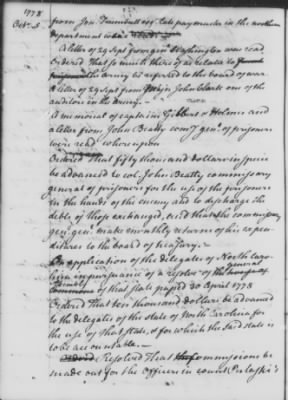 1778
Octr. 5
from Jon. Trumbull esqr. late paymaster in the northern
department was read
A letter of 29 Sept from genl Washington was read
Ordered That so much thereof as relates to
the army be referred to the board of war
A letter of 29 Sept from John Clark one of the
auditors in the army
A memorial of captains Gibbert & Holmes and
a letter from John Beatty comy genl. of prisoners
were read whereupon
Ordered That fifty thousand dollars in specie
be advanced to col. John Beatty commissary
general of prisoners for the use of the prisoners
in the hands of the enemy and to discharge the
debts of those exchanged, and that the commissary
genl. make monthly returns of his expen
ditures to the board of treasury.
On application of the delegates of North Caro
lina in pursuance of a resolve of the general
assembly of that state passed 30 April 1778
Ordered That ten thousand dollars be advanced
to the delegates of the state of North Carolina for
the use of that state, & for which the said state is
to be accountable.
Resolved That commissions be
made out for the officers in count Pulaski's